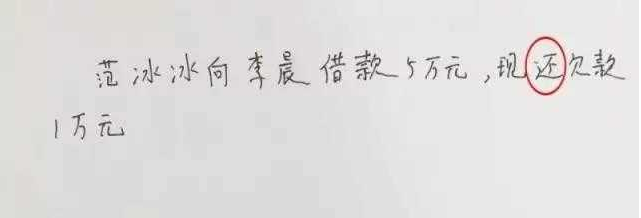 范冰冰向李晨借款5万元,现还欠款
1万元